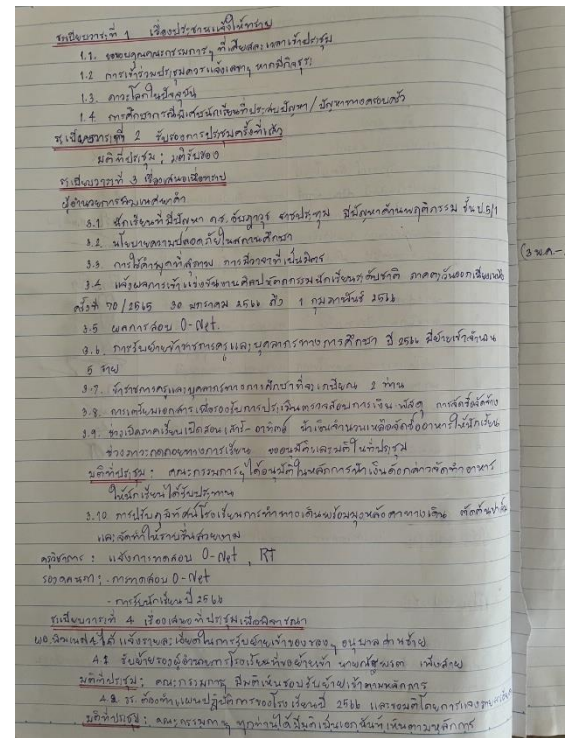 ระเบียบวาระที่ 1 เรื่องประธานแจ้งให้ทราบ
1.1. ขอขอบคุณคณะกรรมการฯ ที่เสียสละเวลาเข้าประชุม
1.2 การเข้าร่วมประชุมควรแจ้งเลขาฯ หากมีกิจธุระ
1.3. ภาวะโลกในปัจจุบัน
1.4 การศึกษากรณีพิเศษนักเรียนที่ประสบปัญหา/ปัญหาทางครอบครัว
ระเบียบวาระที่ 2 รับรองการประชุมครั้งที่แล้ว
มติที่ประชุม : มติรับรอง
ระเบียบวาระที่ 3 เรื่องเสนอเพื่อทราบ
ผู้อำนวยการ
3.1 นักเรียนที่มีปัญหา ด.ช. มีปัญหาด้านพฤติกรรม ชั้น ป.5/1
3.2 นโยบายความปลอดภัยในสถานศึกษา
3.3 การใช้คำพูดที่สุภาพ การมีวาจาที่เป็นมิตร
(3 พ.ค.-
3.4 แจ้งผลการเข้าแข่งขันงานศิลปหัตถกรรมนักเรียนระดับชาติ ภาคตะวันออกเฉียงเหนือ
ครั้งที่ 70/2565 30 มกราคม 2566 ถึง 1 กุมภาพันธ์ 2566
3.5 ผลการสอบ O-Net.
3.6. การรับย้ายข้าราชการครูและบุคลากรทางการศึกษา ปี 2566 มีย้ายเข้าจำนวน
5 ราย
3.7. ข้าราชการครูและบุคลากรทางการศึกษาที่จะเกษียณ 2 ท่าน
3.8. การเตรียมเอกสารเพื่อรองรับการประเมินตรวจสอบการเงิน พัสดุ การจัดซื้อจัดจ้าง
3.9. ช่วงเปิดภาคเรียนเปิดสอนเสาร์-อาทิตย์ นำเงินจำนวนเหลือจัดซื้ออาหารให้นักเรียน
ช่วงภาวะถดถอยทางการเรียน ขออนุมัติและมติในที่ประชุม
มติที่ประชุม : คณะกรรมการฯ ได้อนุมัติในหลักการนำเงินดังกล่าวจัดทำอาหาร
ให้นักเรียนได้รับประทาน
3.10. การปรับภูมิทัศน์โรงเรียนการทำทางเดินพร้อมมุงหลังคาทางเดิน ตัดต้นปาล์ม
และจัดทำให้ราบรื่นสวยงาม
ครูวิชาการ : แจ้งการทดสอบ O-Net, RT
รองคณนา : - การทดสอบ O-Net
- การรับนักเรียนปี 2566
ระเบียบวาระที่ 4 เรื่องเสนอที่ประชุมเพื่อพิจารณา
ได้แจ้งรายละเอียดในการรับย้ายเข้าของ อนุบาลด่านซ้าย
4.1 รับย้ายรองผู้อำนวยการโรงเรียนที่ขอย้ายเข้า
มติที่ประชุม : คณะกรรมการฯ มีมติเห็นชอบรับย้ายเข้าตามหลักการ
4.2 รร. ต้องทำแผนปฏิบัติการของโรงเรียนปี 2566 และขอมติโดยการแจง
มติที่ประชุม : คณะกรรมการฯ ทุกท่านได้มีมติเป็นเอกฉันท์เห็นตามหลักการ